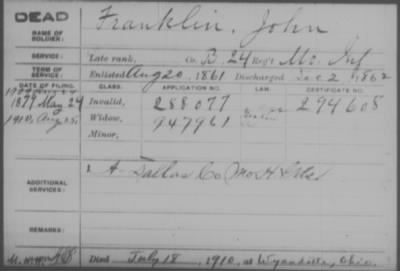 DEAD
NAME OF SOLDIER: Franklin, John
SERVICE: Late rank, Co. B, 24 Reg't Mo. Inf
TERM OF SERVICE: Enlisted Aug 20, 1861 Discharged Dec 2, 1862
DATE OF FILING. CLASS. APPLICATION NO. LAW. CERTIFICATE NO.
1879 May 29 Invalid, 288077 294608
1910, Aug 25 Widow, 947961
Minor,
ADDITIONAL SERVICES: A. Dallas Co Mo H
REMARKS:
Died July 18, 1910, at Wyandotte, Okla.